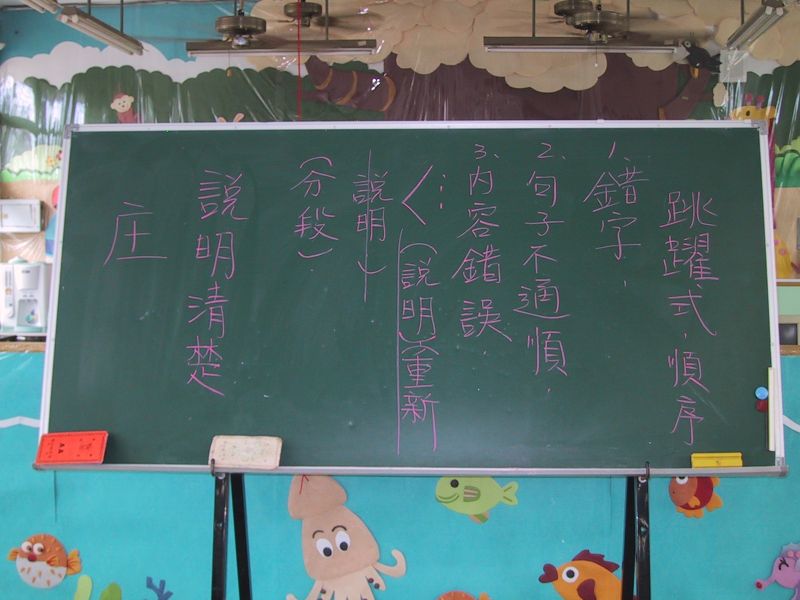 跳躍式.順序
1.錯字.
2.句子不通順.
3.內容錯誤.
(說明)重新
說明)
(分段)
說明清楚
庄